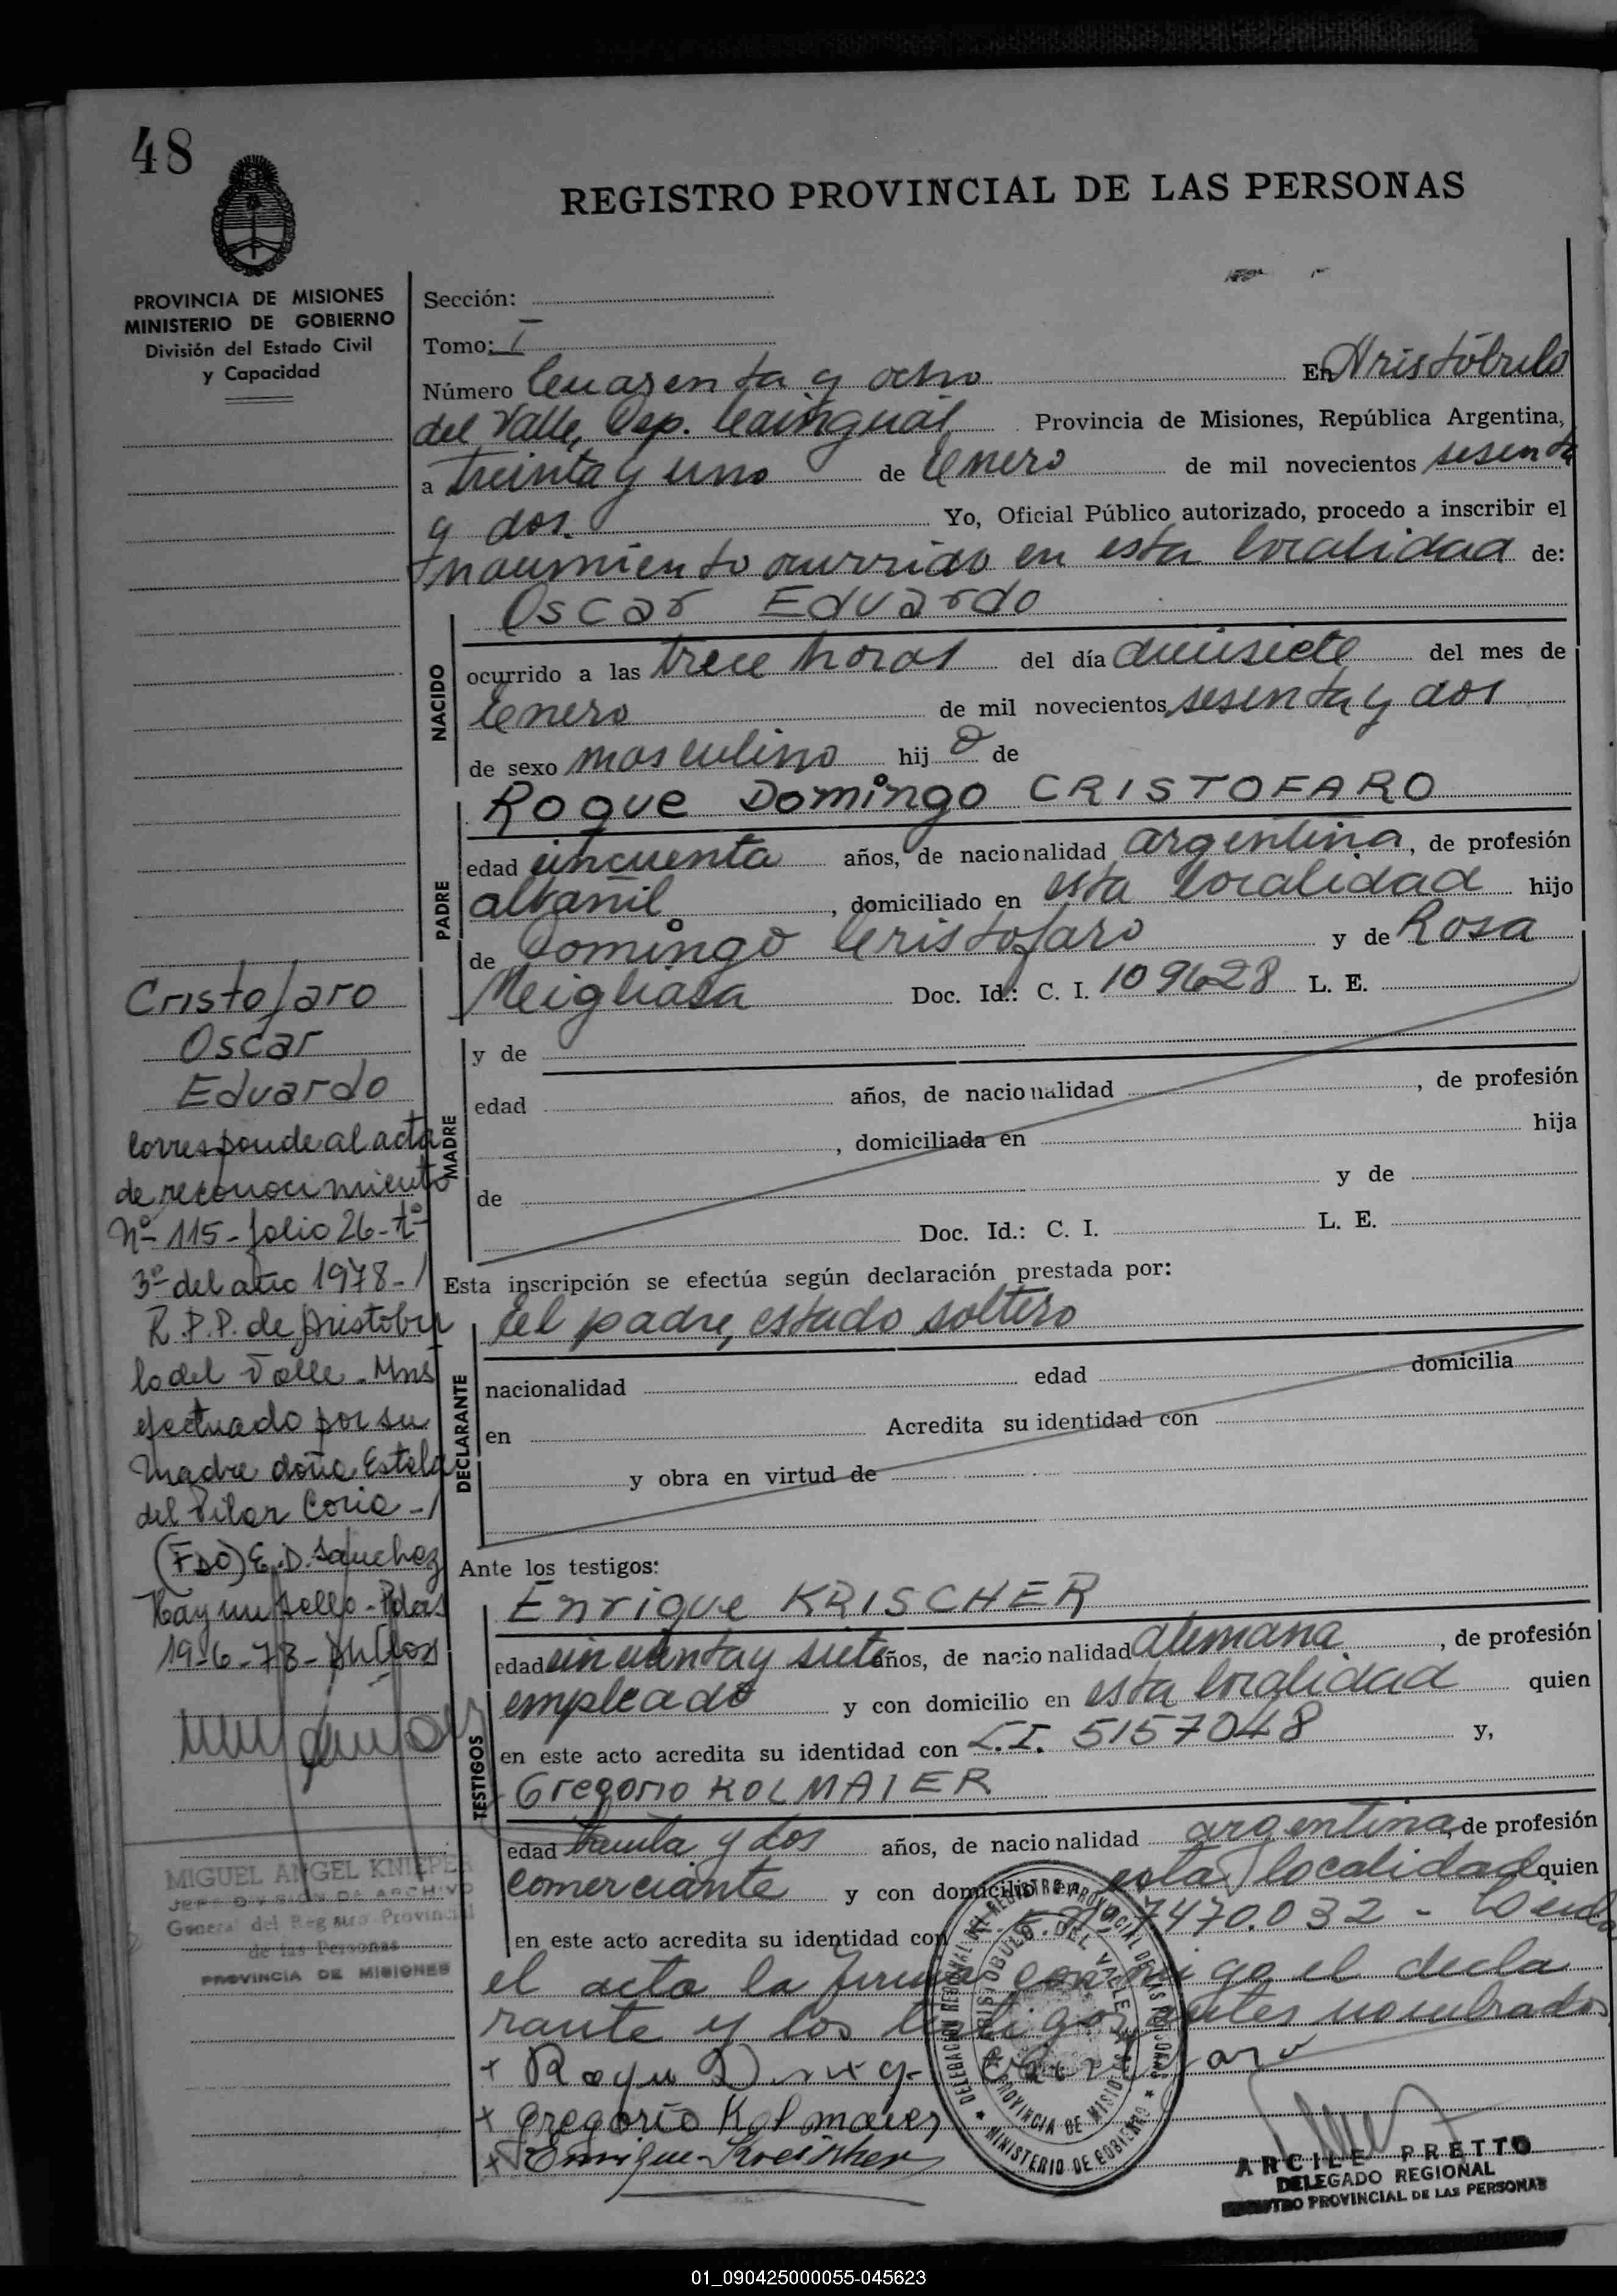 48
REGISTRO PROVINCIAL DE LAS PERSONAS
PROVINCIA DE MISIONES
MINISTERIO DE GOBIERNO
División del Estado Civil
y Capacidad
Sección:
Tomo: I
Número Cuarenta y ocho En Aristóbulo
del Valle, Dep. Cainguás Provincia de Misiones, República Argentina,
a treinta y uno de Enero de mil novecientos sesenta
y dos. Yo, Oficial Público autorizado, procedo a inscribir el
nacimiento ocurrido en esta localidad de:
Oscar Eduardo
NACIDO
ocurrido a las trece horas del día diecisiete del mes de
Enero de mil novecientos sesenta y dos
de sexo masculino hij o de
Roque Domingo CRISTOFARO
PADRE
edad cincuenta años, de nacionalidad argentina, de profesión
albañil, domiciliado en esta localidad hijo
de Domingo Cristofaro y de Rosa
Doc. Id.: C. I. 109628 L. E.
MADRE
y de
edad años, de nacionalidad, de profesión
, domiciliada en hija
de y de
Doc. Id.: C. I. L. E.
Cristofaro
Oscar
Eduardo
Corresponde al acta
de reconocimiento
Nº 115 - folio 26 - tº
3º del año 1978 -
R.P.P. de Aristobu
lo del Valle - Mns
efectuado por su
madre doña Estela
del Pilar Coria -
(FDO) E.D. Sanchez
Hay un sello - Pdas
19-6-78 -
MIGUEL ANGEL KNIEPE
JEFE DIVISION DE ARCHIVO
General del Registro Provincial
de las Personas
PROVINCIA DE MISIONES
Esta inscripción se efectúa según declaración prestada por:
El padre, estado soltero
DECLARANTE
nacionalidad edad domicilia
en Acredita su identidad con
y obra en virtud de
Ante los testigos:
Enrique KRISCHER
TESTIGOS
edad cincuenta y siete años, de nacionalidad alemana, de profesión
empleado y con domicilio en esta localidad quien
en este acto acredita su identidad con C.I. 5157048 y,
Gregorio KOLMAIER
edad treinta y dos años, de nacionalidad argentina, de profesión
comerciante y con domicilio en esta localidad quien
en este acto acredita su identidad con 7470.032 - Leida
el acta la firman conmigo el decla
rante y los testigos antes nombrados
+ Roque
+ Gregorio Kolmaier
+ Enrique Krischer
DELEGACION REGIONAL DEL REGISTRO PROVINCIAL DE LAS PERSONAS
MINISTERIO DE GOBIERNO
ARISTOBULO DEL VALLE
PROVINCIA DE MISIONES
ARCILE PRETTO
DELEGADO REGIONAL
REGISTRO PROVINCIAL DE LAS PERSONAS
01_090425000055-045623